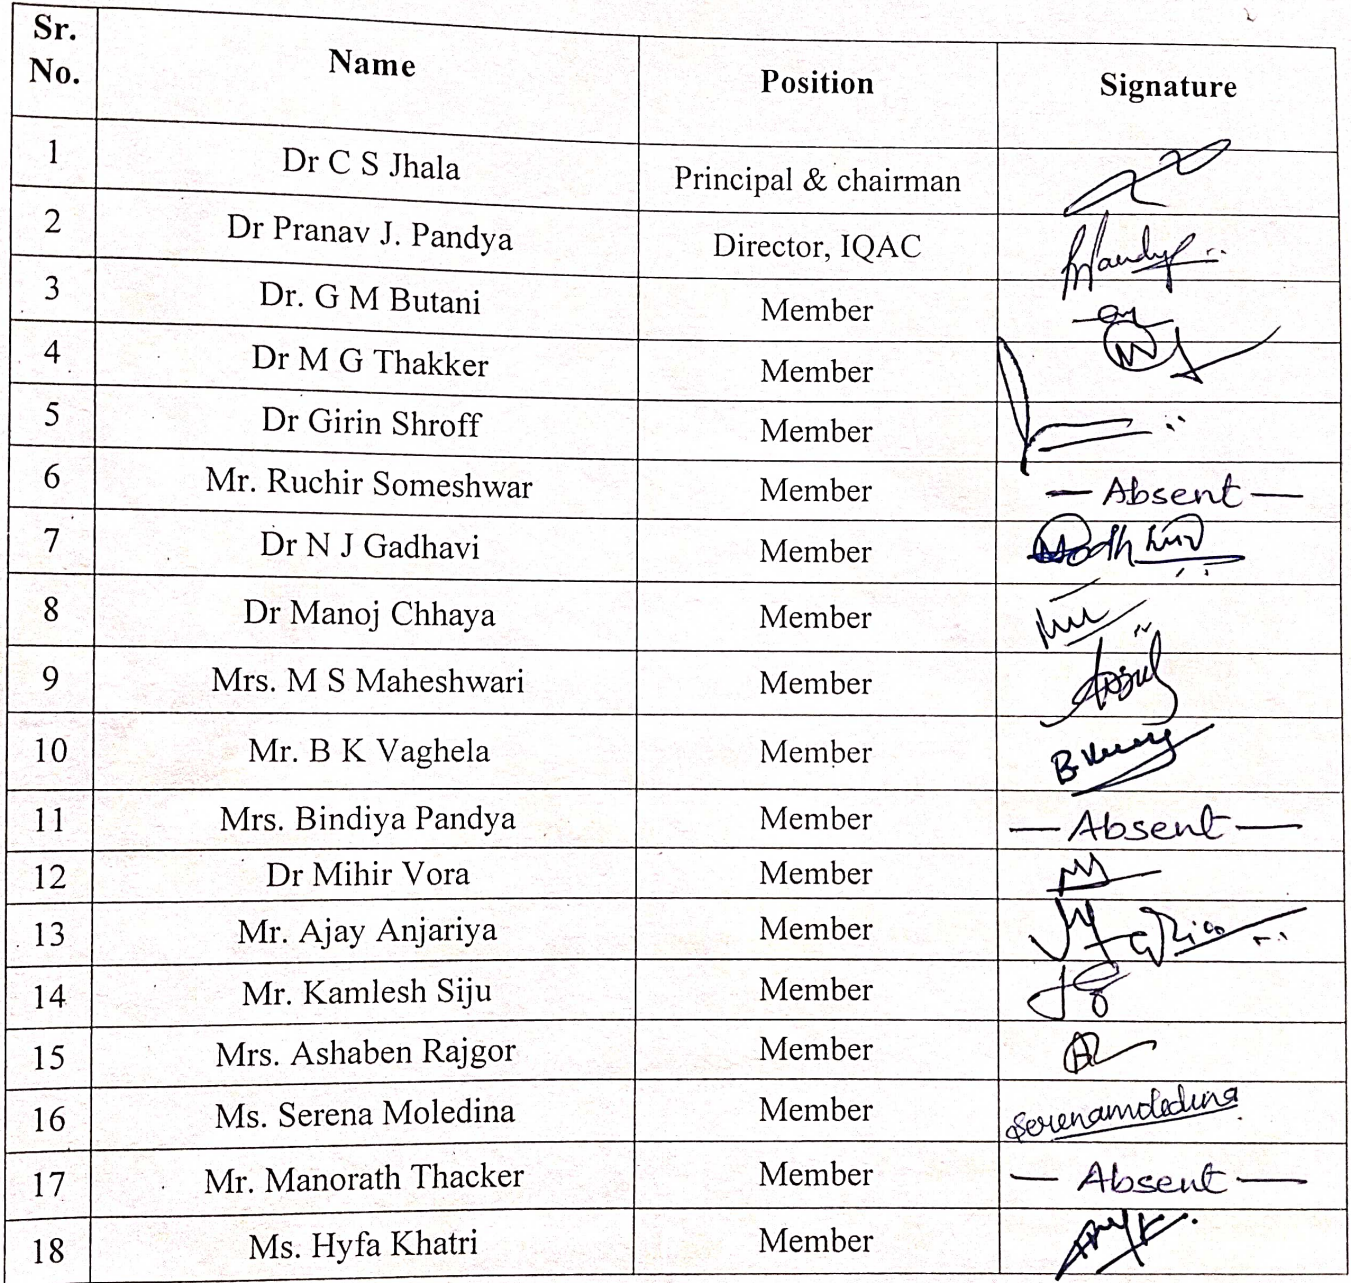 Sr. No. Name Position Signature
1 Dr C S Jhala Principal & chairman
2 Dr Pranav J. Pandya Director, IQAC
3 Dr. G M Butani Member
4 Dr M G Thakker Member
5 Dr Girin Shroff Member
6 Mr. Ruchir Someshwar Member — Absent —
7 Dr N J Gadhavi Member
8 Dr Manoj Chhaya Member
9 Mrs. M S Maheshwari Member
10 Mr. B K Vaghela Member
11 Mrs. Bindiya Pandya Member — Absent —
12 Dr Mihir Vora Member
13 Mr. Ajay Anjariya Member
14 Mr. Kamlesh Siju Member
15 Mrs. Ashaben Rajgor Member
16 Ms. Serena Moledina Member Serenamoledina
17 Mr. Manorath Thacker Member — Absent —
18 Ms. Hyfa Khatri Member